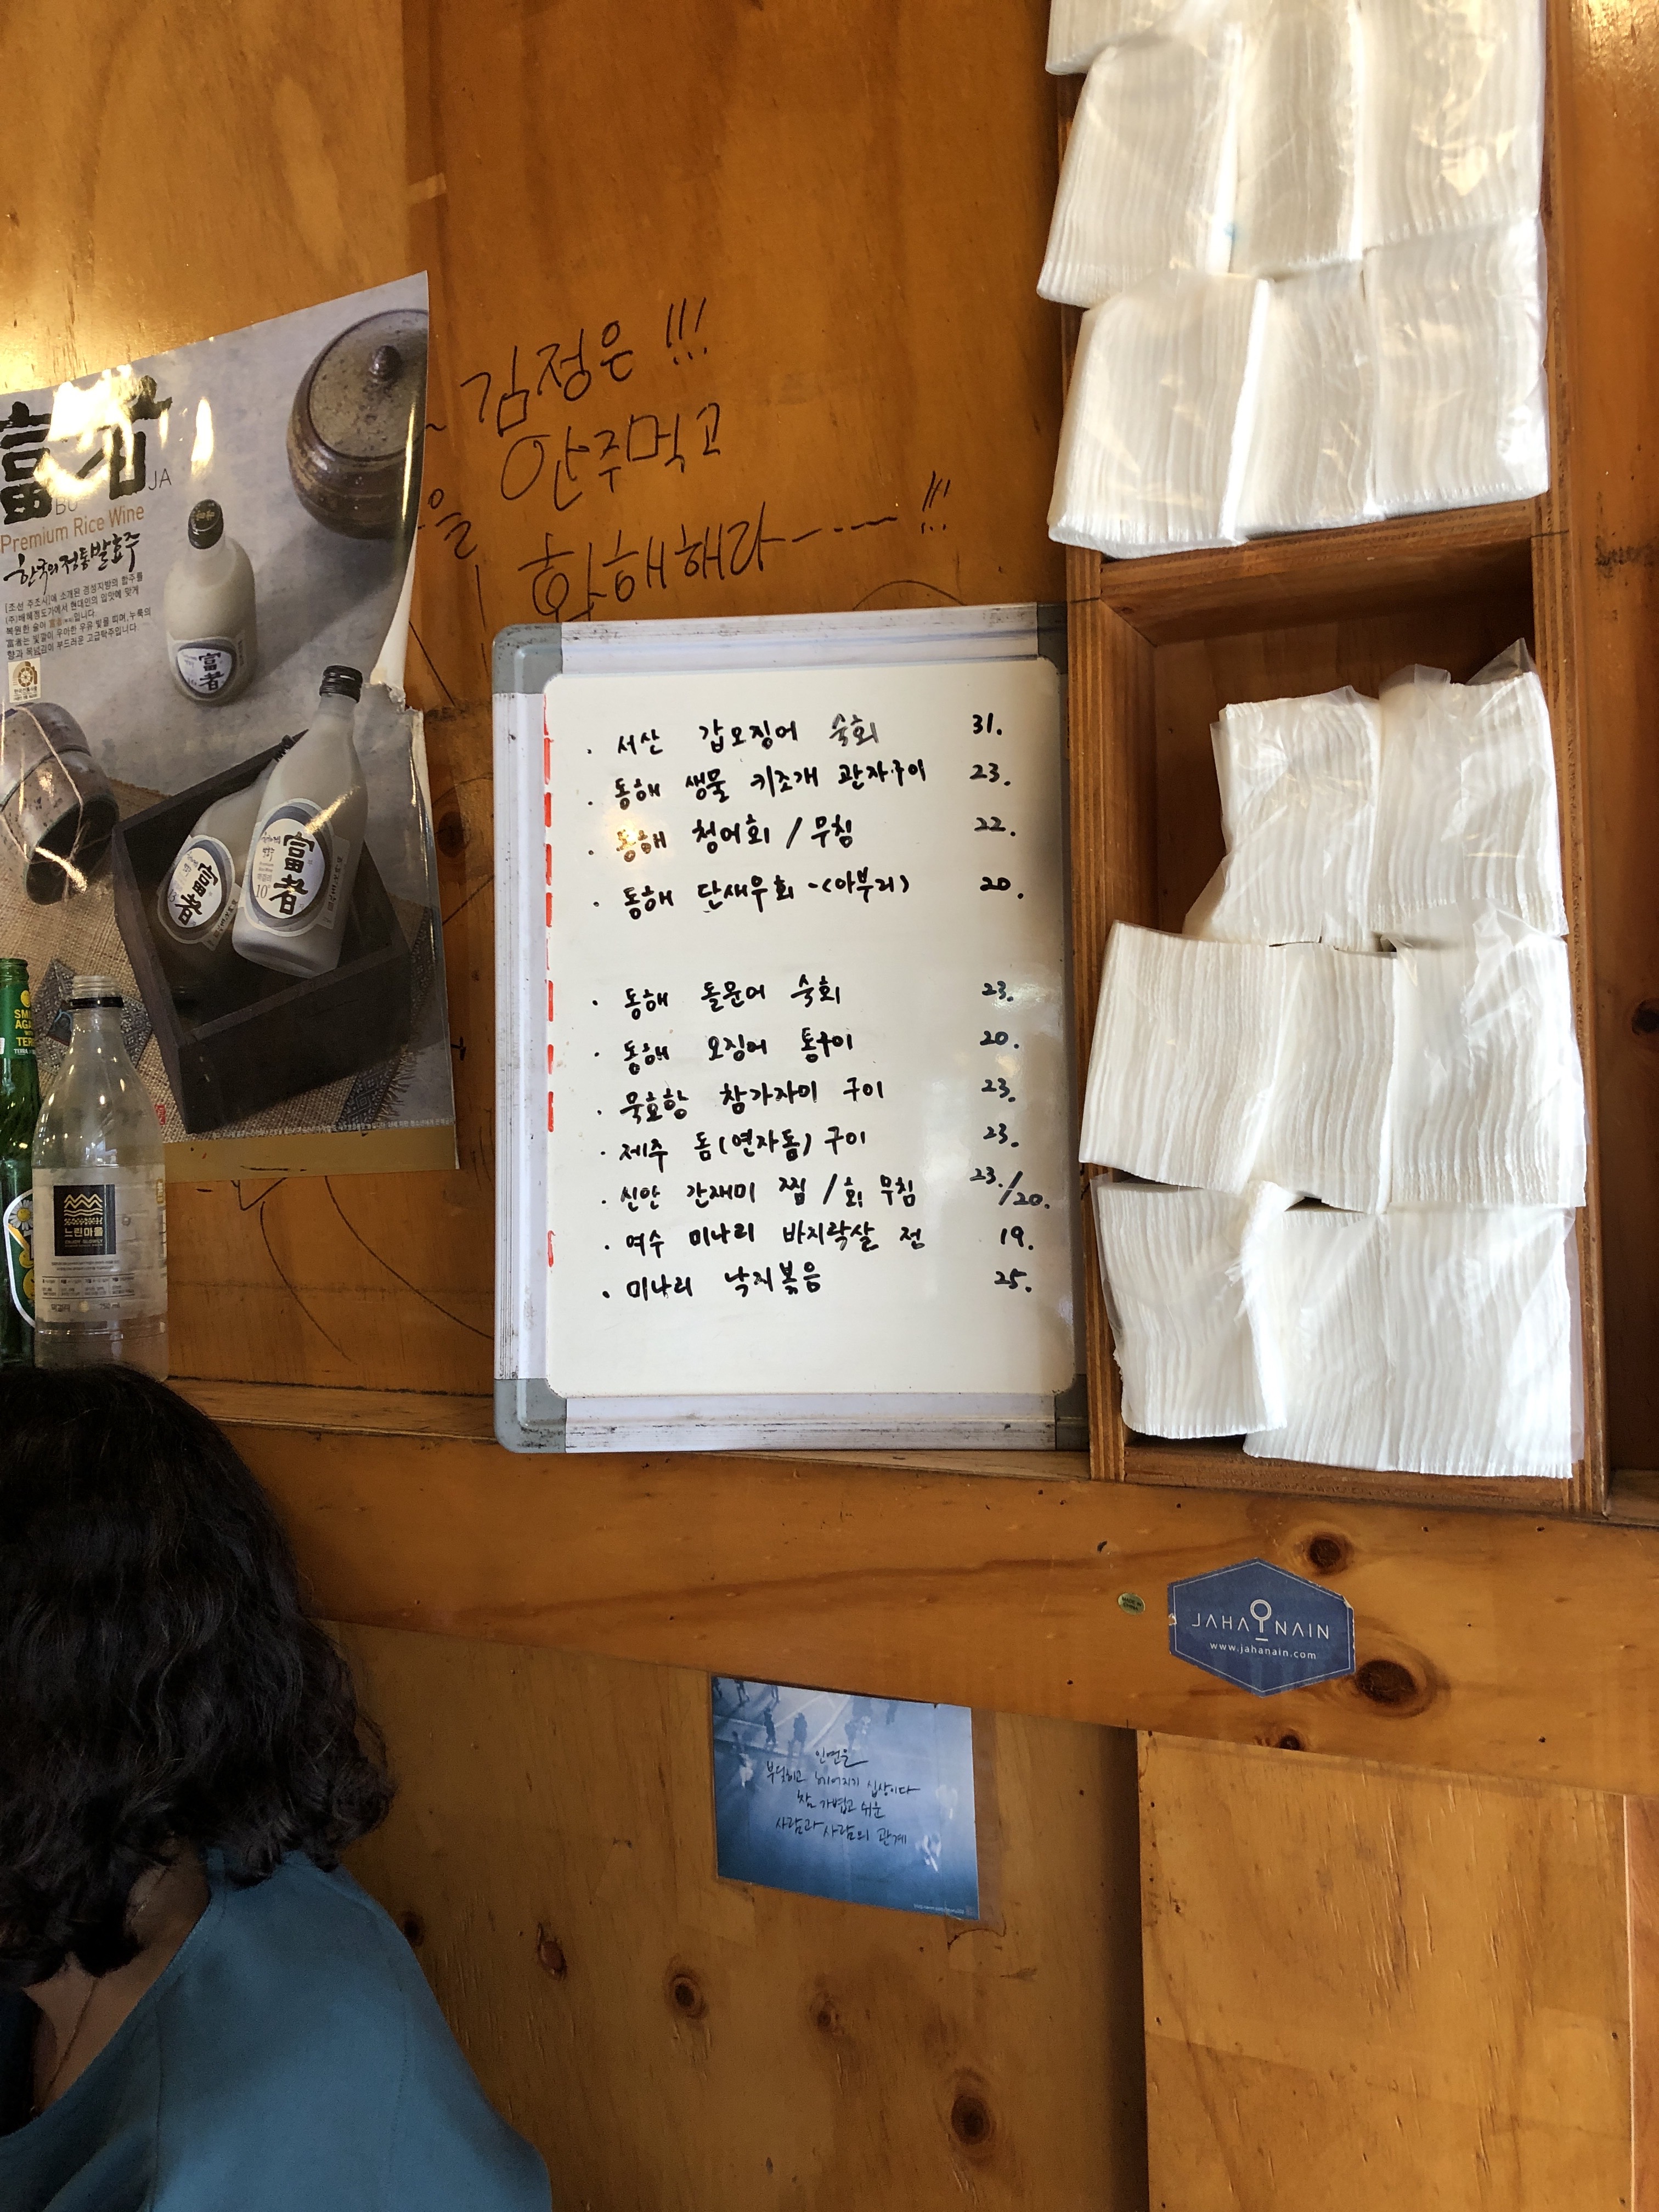 富者
BU JA
Premium Rice Wine
한국의 정통발효주
富者
富者
富者
10°
TERRA
느린마을
김정은 !!!
안주먹고
화해해라----!!!
을
· 서산 갑오징어 숙회 31.
· 동해 생물 키조개 관자구이 23.
· 동해 청어회 / 무침 22.
· 동해 단새우회 -(아부리) 20.
· 동해 돌문어 숙회 23.
· 동해 오징어 통구이 20.
· 묵호항 참가자미 구이 23.
· 제주 돔(연자돔) 구이 23.
· 신안 간재미 찜 / 회 무침 23./20.
· 여수 미나리 바지락살 전 19.
· 미나리 낙지볶음 25.
JAHA NAIN
www.jahanain.com
인연은
부딪히고 헤어지기 십상이다
참 가볍고 쉬운
사람과 사람의 관계